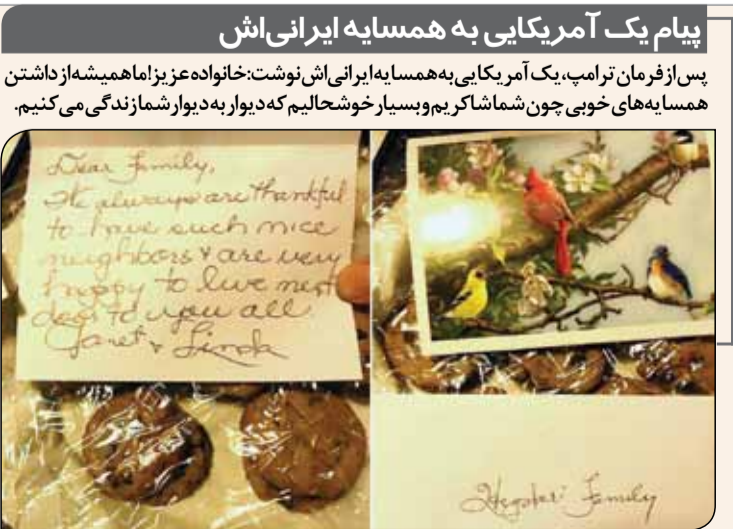 پیام یک آمریکایی به همسایه ایرانی‌اش
پس از فرمان ترامپ، یک آمریکایی به همسایه ایرانی‌اش نوشت: خانواده عزیز! ما همیشه از داشتن
همسایه‌های خوبی چون شما شاکریم و بسیار خوشحالیم که دیوار به دیوار شما زندگی می‌کنیم.
Dear Family,
We always are thankful
to have such nice
neighbors & are very
happy to live next
door to you all
Janet & Linda
Family